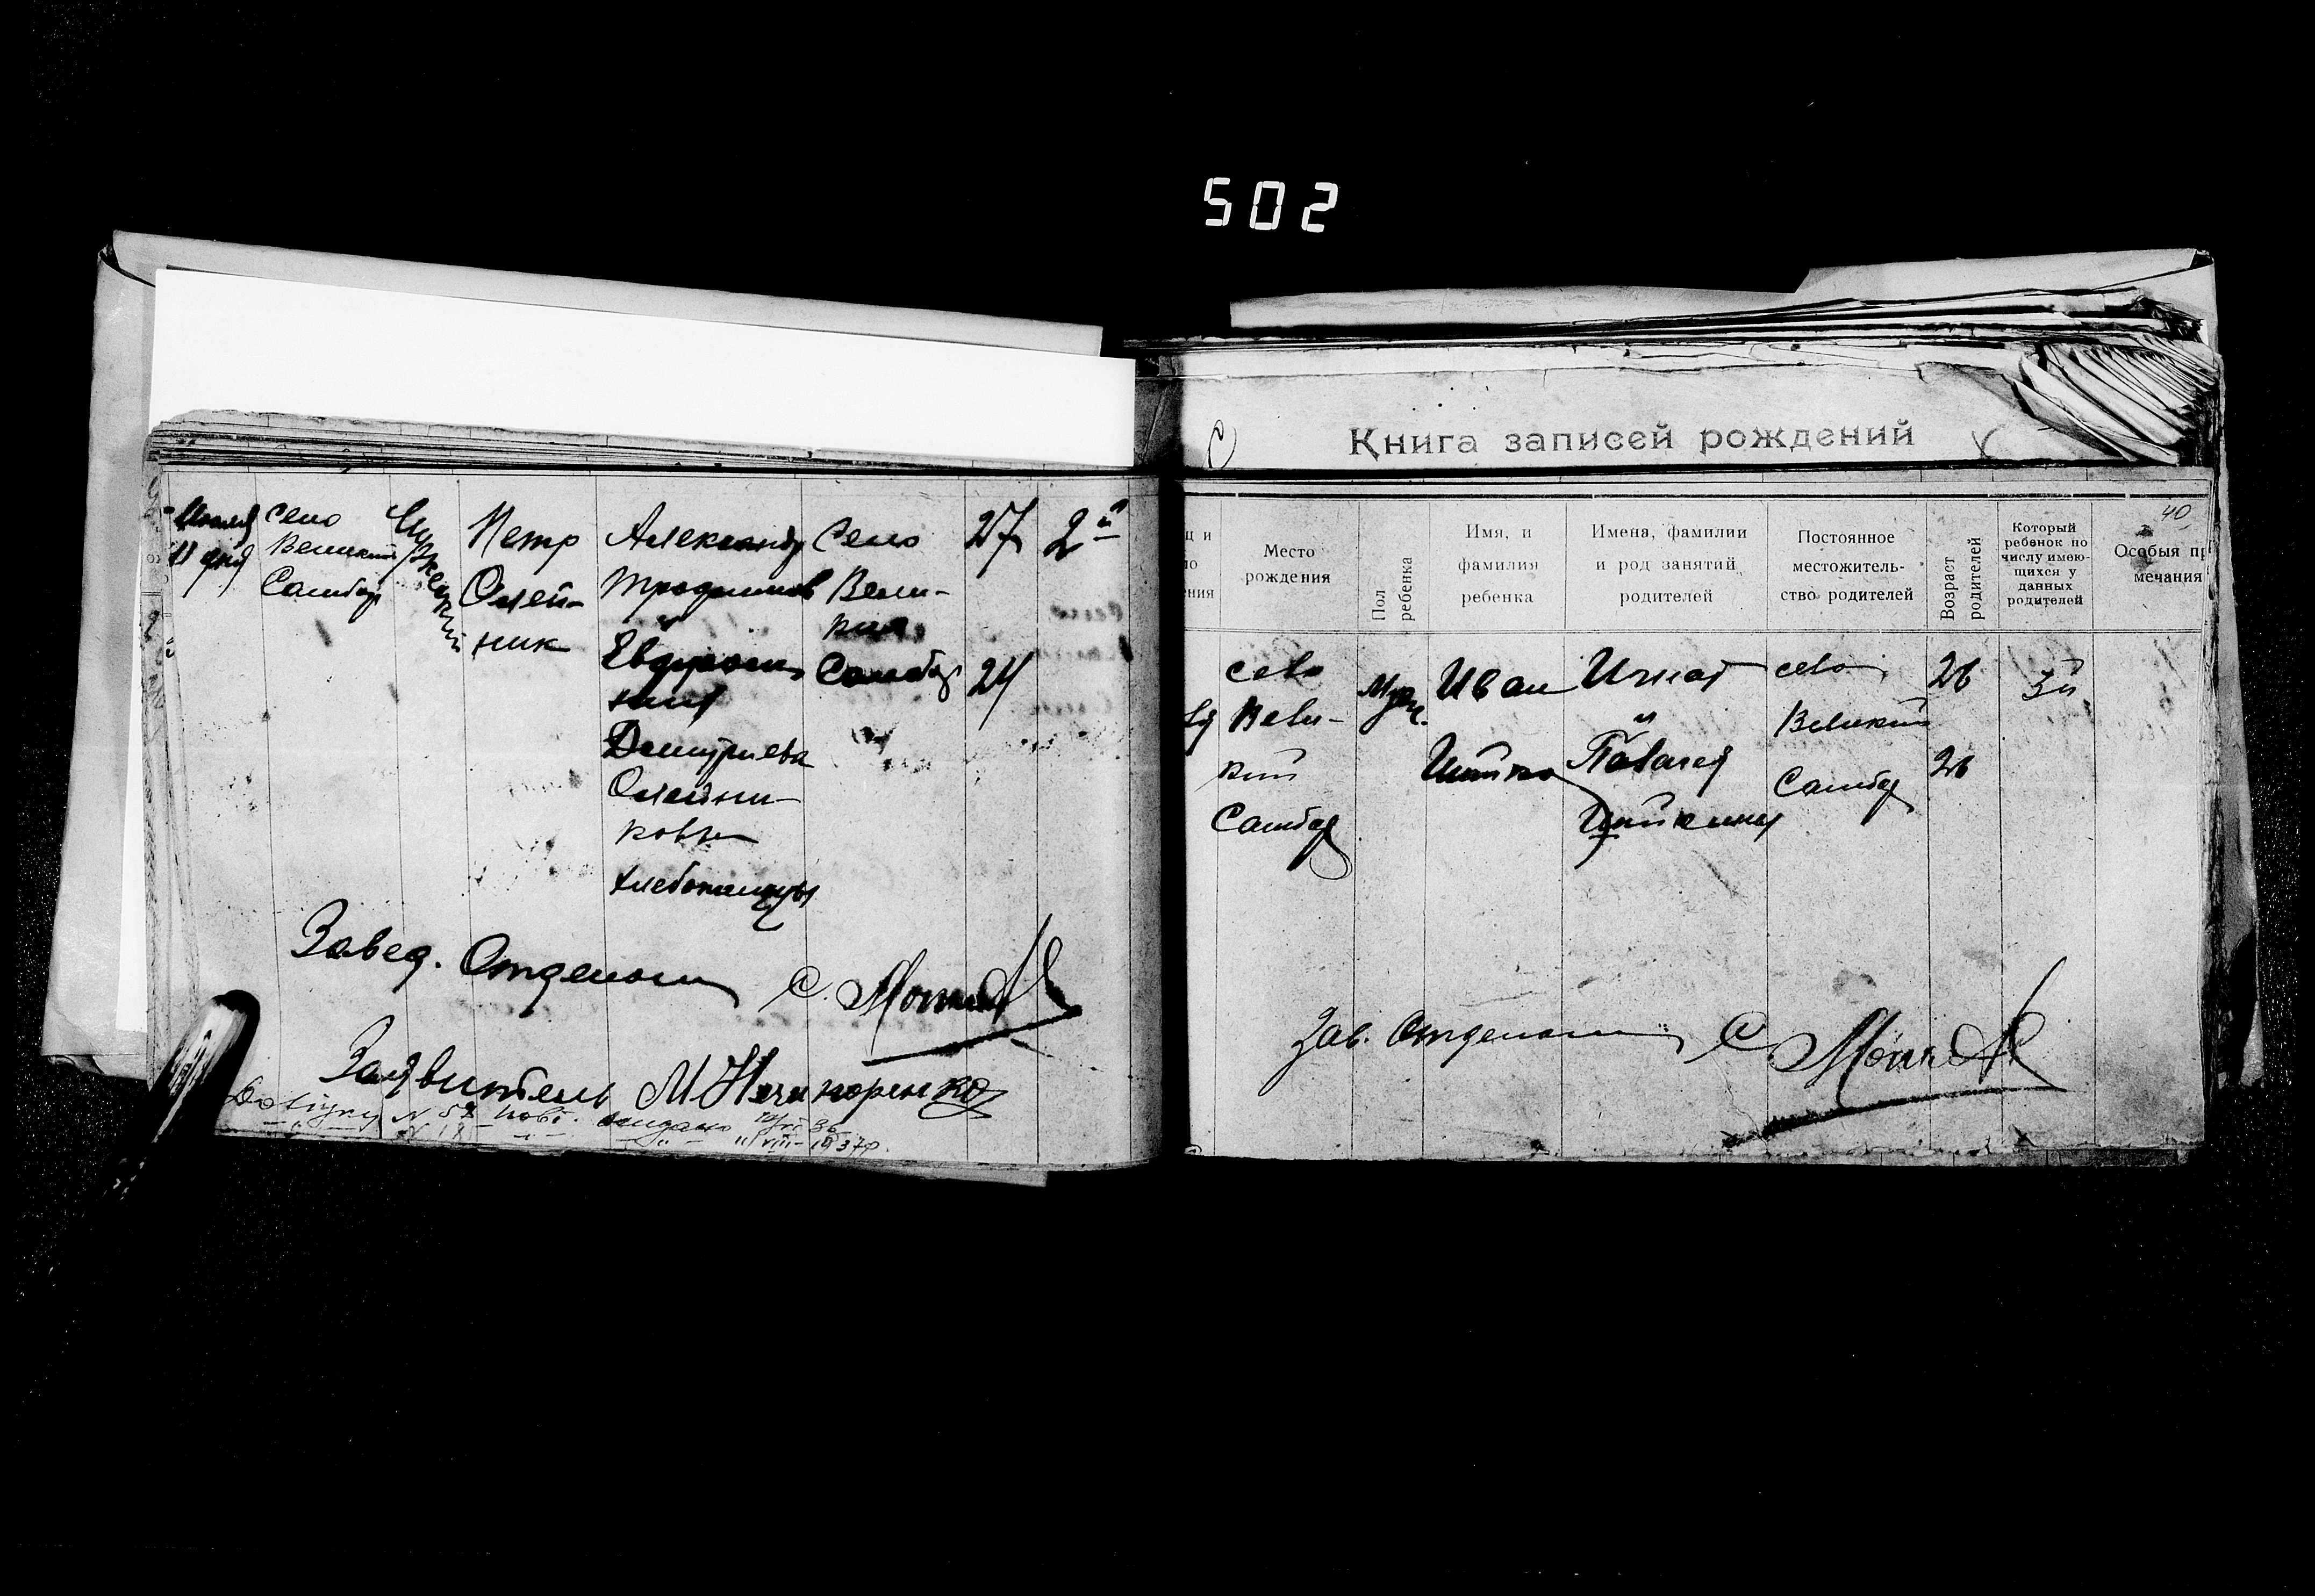 502
Июля
11 дня
село
Великий
Самбор
Мужский
Петр
Олей-
ник
Александр
Трофимов
и
Евдокия
Дмитриева
Олейни-
ковы
хлебопашцы
Село
Вели-
кий
Самбор
27
24
2й
Завед. Отделом С.
Заявитель М Ничипоренко
Довідку N 52 нові. видано 36
N 18 " " " VIII 1937р.
Книга записей рождений
40
Место
рождения
Пол
ребенка
Имя, и
фамилия
ребенка
Имена, фамилии
и род занятий
родителей
Постоянное
местожитель-
ство родителей
Возраст
родителей
Который
ребенок по
числу имею-
щихся у
данных
родителей
Особыя пр
мечания
село
Вели-
кий
Самбор
Муж.
Иван
Игнат
и
село
Великий
Самбор
26
26
3й
Зав. Отделом С.